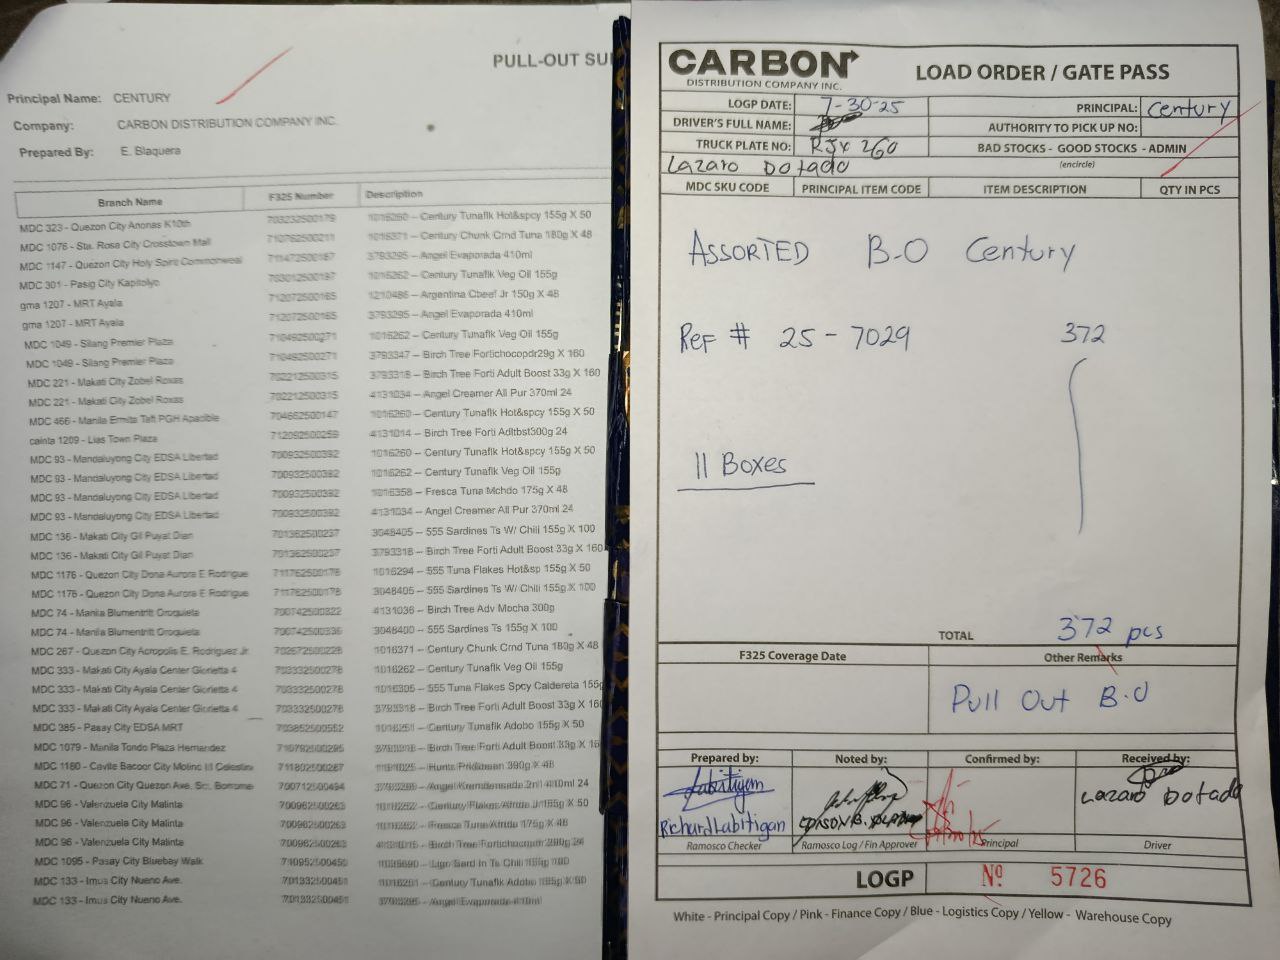 PULL-OUT SU
Principal Name: CENTURY
Company: CARBON DISTRIBUTION COMPANY INC.
Prepared By: E. Blaquera
Branch Name F325 Number Description
MDC 323 - Quezon City Anonas K10th 703232500179 1016260 – Century Tunaflk Hot&spcy 155g X 50
MDC 1076 - Sta. Rosa City Crosstown Mall 710762500211 1016371 – Century Chunk Crnd Tuna 180g X 48
MDC 1147 - Quezon City Holy Spirit Commonweal 711472500187 3793295 – Angel Evaporada 410ml
MDC 301 - Pasig City Kapitolyo 703012500197 1016262 – Century Tunaflk Veg Oil 155g
gma 1207 - MRT Ayala 712072500165 1210486 – Argentina Cbeef Jr 150g X 48
gma 1207 - MRT Ayala 712072500165 3793295 – Angel Evaporada 410ml
MDC 1049 - Silang Premier Plaza 710492500271 1016262 – Century Tunaflk Veg Oil 155g
MDC 1049 - Silang Premier Plaza 710492500271 3793347 – Birch Tree Fortichocopdr29g X 160
MDC 221 - Makati City Zobel Roxas 702212500315 3793318 – Birch Tree Forti Adult Boost 33g X 160
MDC 221 - Makati City Zobel Roxas 702212500315 4131034 – Angel Creamer All Pur 370ml 24
MDC 466 - Manila Ermita Taft PGH Apacible 704662500147 1016260 – Century Tunaflk Hot&spcy 155g X 50
cainta 1209 - Lias Town Plaza 712092500259 4131014 – Birch Tree Forti Adltbst300g 24
MDC 93 - Mandaluyong City EDSA Libertad 700932500392 1016260 – Century Tunaflk Hot&spcy 155g X 50
MDC 93 - Mandaluyong City EDSA Libertad 700932500392 1016262 – Century Tunaflk Veg Oil 155g
MDC 93 - Mandaluyong City EDSA Libertad 700932500392 1016358 – Fresca Tuna Mchdo 175g X 48
MDC 93 - Mandaluyong City EDSA Libertad 700932500392 4131034 – Angel Creamer All Pur 370ml 24
MDC 136 - Makati City Gil Puyat Dian 701362500237 3048405 – 555 Sardines Ts W/ Chili 155g X 100
MDC 136 - Makati City Gil Puyat Dian 701362500237 3793318 – Birch Tree Forti Adult Boost 33g X 160
MDC 1176 - Quezon City Dona Aurora E Rodrigue 711762500178 1016294 – 555 Tuna Flakes Hot&sp 155g X 50
MDC 1176 - Quezon City Dona Aurora E Rodrigue 711762500178 3048405 – 555 Sardines Ts W/ Chili 155g X 100
MDC 74 - Manila Blumentritt Oroquieta 700742500322 4131036 – Birch Tree Adv Mocha 300g
MDC 74 - Manila Blumentritt Oroquieta 3048400 – 555 Sardines Ts 155g X 100
MDC 267 - Quezon City Acropolis E. Rodriguez Jr. 702672500228 1016371 – Century Chunk Crnd Tuna 180g X 48
MDC 333 - Makati City Ayala Center Glorietta 4 703332500278 1016262 – Century Tunaflk Veg Oil 155g
MDC 333 - Makati City Ayala Center Glorietta 4 703332500278 1016305 – 555 Tuna Flakes Spcy Caldereta 155g
MDC 333 - Makati City Ayala Center Glorietta 4 703332500278 3793318 – Birch Tree Forti Adult Boost 33g X 160
MDC 385 - Pasay City EDSA MRT 703852500552 1016251 – Century Tunaflk Adobo 155g X 50
MDC 1079 - Manila Tondo Plaza Hernandez 710792500295 3793318 – Birch Tree Forti Adult Boost 33g X 16
MDC 1180 - Cavite Bacoor City Molino III Celestino 711802500287 Hunts 390g X 48
MDC 71 - Quezon City Quezon Ave. Sct. Borromeo 700712500494 Angel 410ml 24
MDC 96 - Valenzuela City Malinta 700962500263 Century
MDC 96 - Valenzuela City Malinta 700962500263 Fresca 175g X 48
MDC 96 - Valenzuela City Malinta 700962500263 Birch Tree
MDC 1095 - Pasay City Bluebay Walk 710952500450
MDC 133 - Imus City Nueno Ave. 701332500451 1016251 – Century Tunaflk Adobo
MDC 133 - Imus City Nueno Ave. 701332500451 3793295 – Angel Evaporada 410ml
CARBON
DISTRIBUTION COMPANY INC.
LOAD ORDER / GATE PASS
LOGP DATE: 7-30-25 PRINCIPAL: Century
DRIVER'S FULL NAME: AUTHORITY TO PICK UP NO:
TRUCK PLATE NO: RJX 260 BAD STOCKS - GOOD STOCKS - ADMIN
Lazaro Dotado (encircle)
MDC SKU CODE PRINCIPAL ITEM CODE ITEM DESCRIPTION QTY IN PCS
ASSORTED B.O Century
Ref # 25-7029 372
11 Boxes
TOTAL 372 pcs
F325 Coverage Date Other Remarks
Pull Out B.O
Prepared by: Noted by: Confirmed by: Received by:
Lazaro Dotado
Richard Labitigan
Ramosco Checker Ramosco Log / Fin Approver Principal Driver
LOGP Nº 5726
White - Principal Copy / Pink - Finance Copy / Blue - Logistics Copy / Yellow - Warehouse Copy